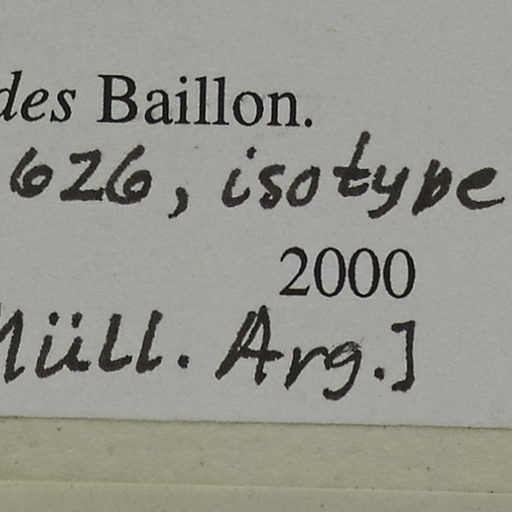 des Baillon.
626, isotype
2000
Müll. Arg.]